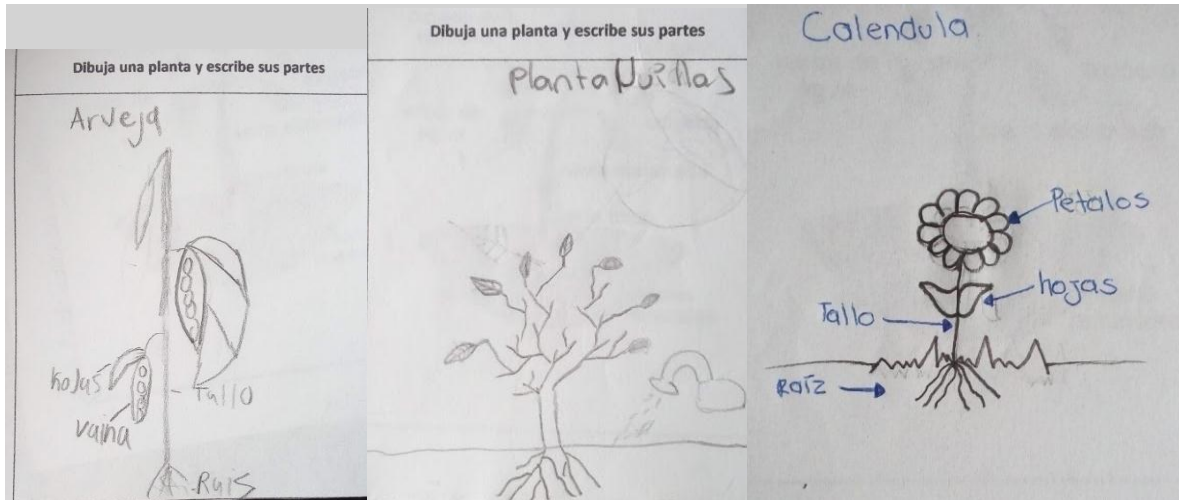 Dibuja una planta y escribe sus partes
Arveja
hojas
vaina
Tallo
Ruis
Dibuja una planta y escribe sus partes
Planta
Calendula
Petalos
hojas
Tallo
Raíz